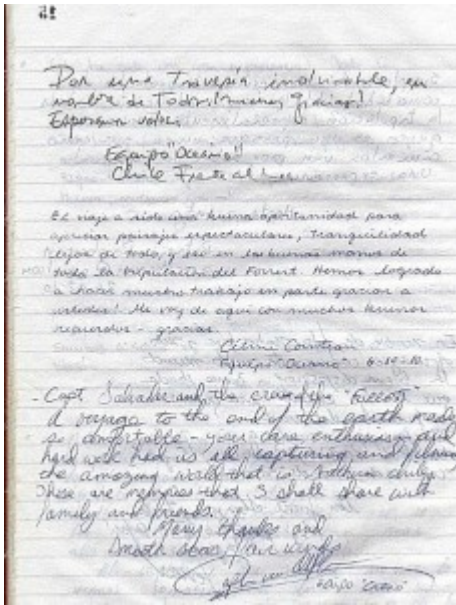 Por una Travesía inolvidable, en
nombre de Todos! muchas gracias!
Esperamos volver.
Equipo "Oceano"
Chile Frente al
El viaje a sido una buena oportunidad para
apreciar paisajes espectaculares, tranquilidad
lejos de todo, y eso en las buenas manos de
toda la tripulación del Forrest. Hemos logrado
a hacer mucho trabajo en parte gracias a
ustedes! Me voy de aqui con muchos buenos
recuerdos - gracias.
Céline
Equipo "Oceano" 6-10-10
- Capt. Salvador and the crew of the
A voyage to the end of the earth made
so comfortable - your care, enthusiasm and
hard work had us all capturing and filming
the amazing world that is southern Chile.
These are memories that I shall share with
family and friends.
Many thanks and
Smooth seas, fair winds
Equipo